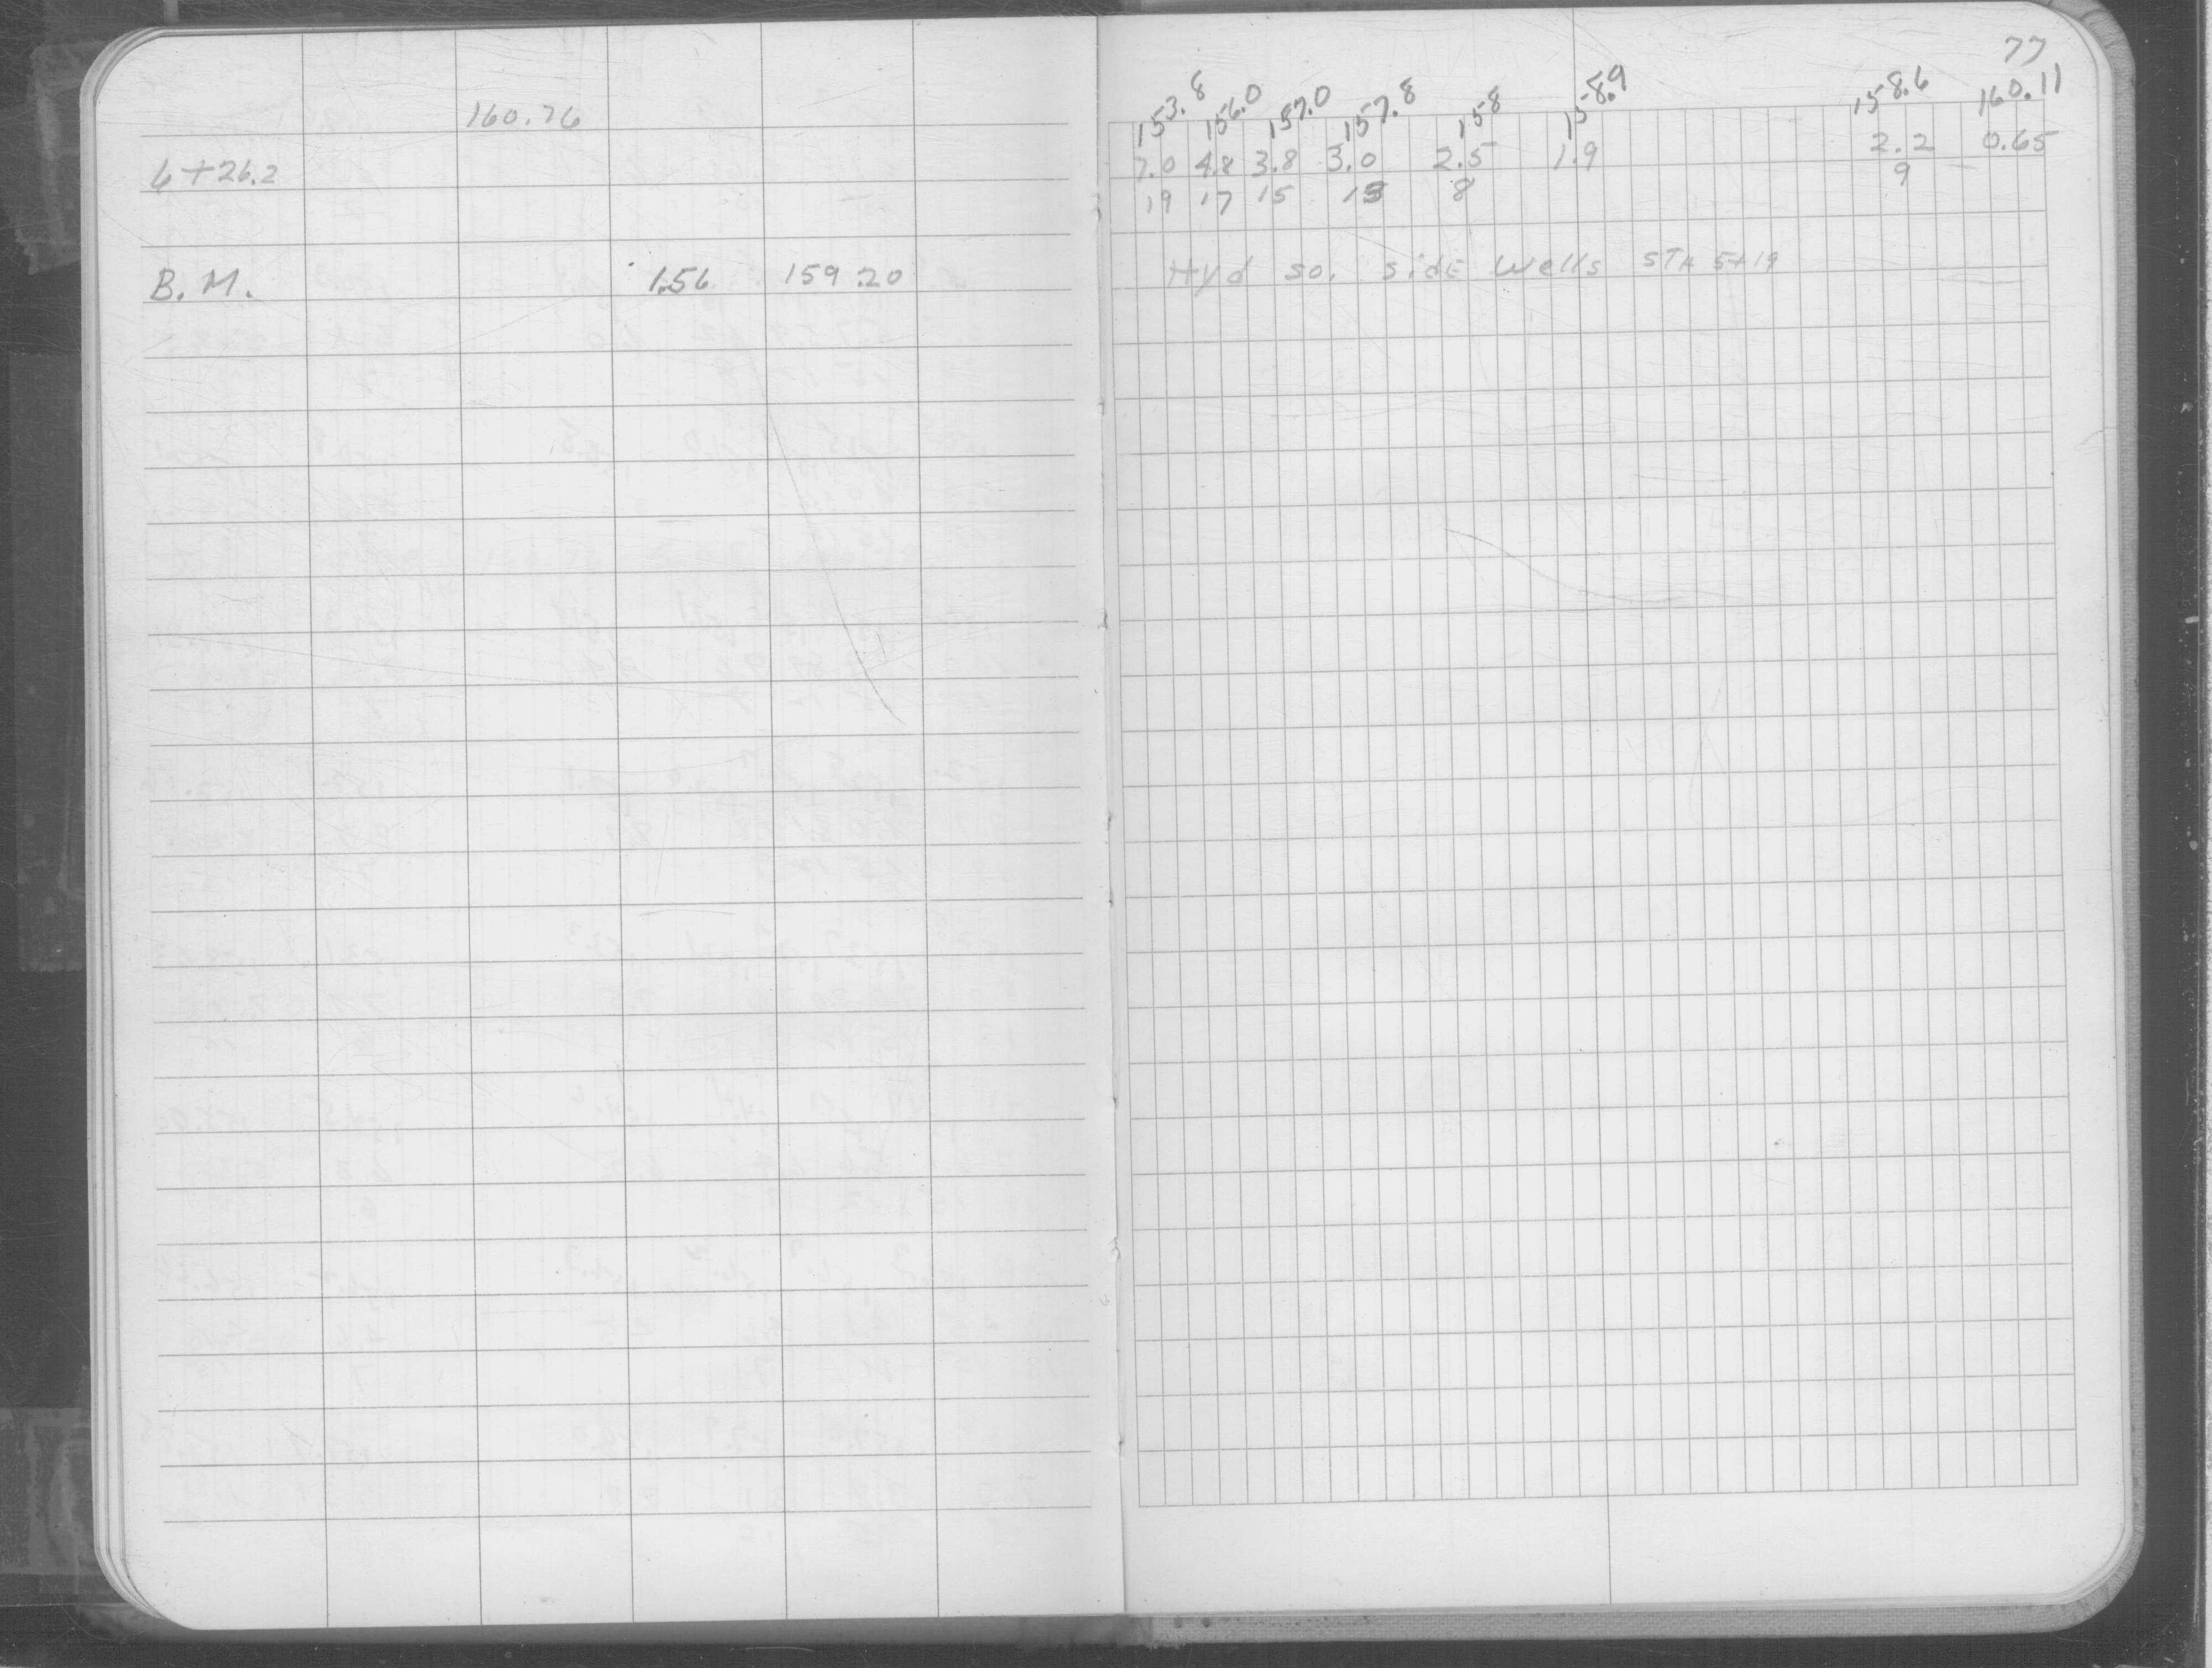 160.76
6+26.2
B.M. 1.56 159.20
77
153.8 156.0 157.0 157.8 158 158.9 158.6 160.11
7.0 4.8 3.8 3.0 2.5 1.9 2.2 0.65
19 17 15 13 8 9
Hyd so. side Wells STA 5+19